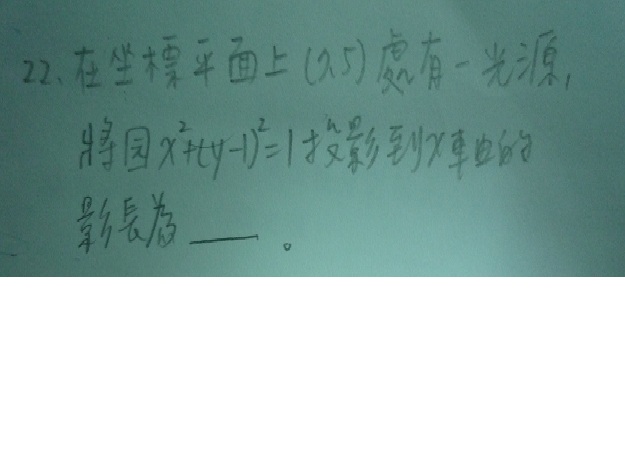 22、在坐標平面上(2,5)處有一光源,
將圆x²+(y-1)²=1投影到x車由的
影長為____。